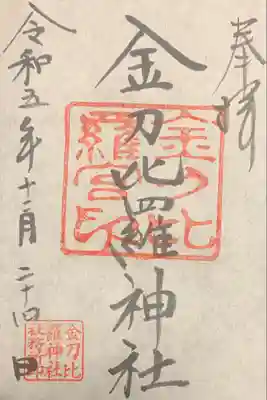 奉拝
金刀比羅神社
令和五年十二月二十四日
金刀比
羅宮印
金刀比
羅神社
社務所印